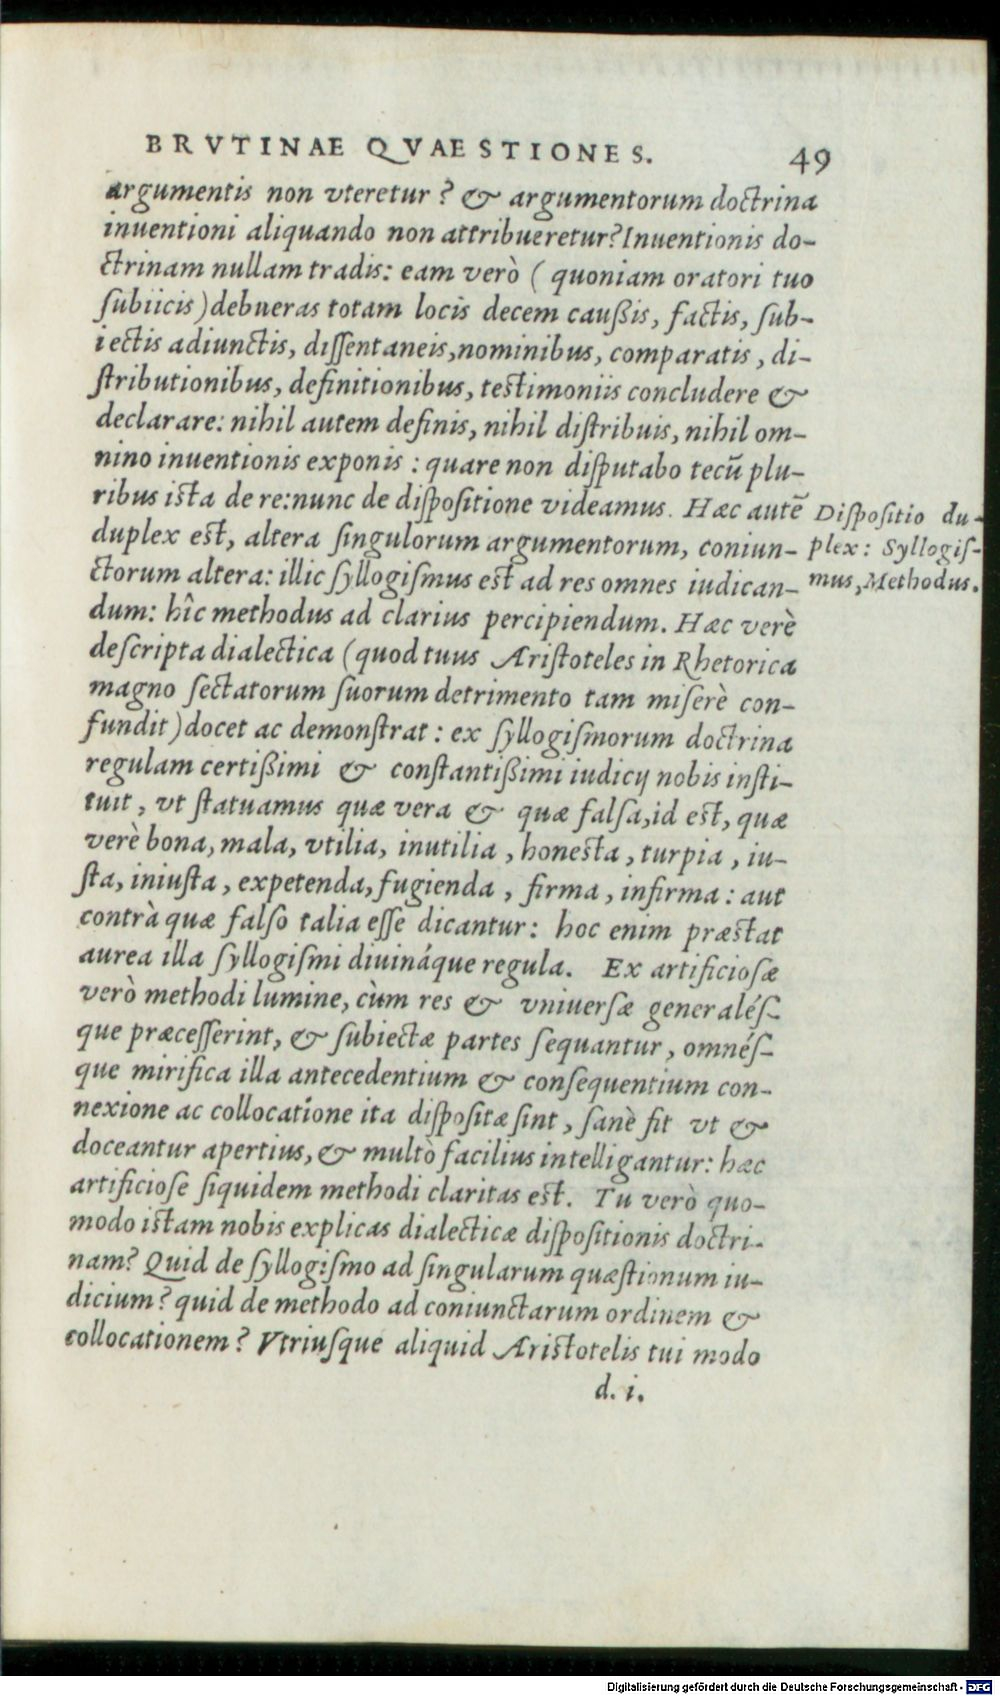 BRVTINAE QVAESTIONES. 49
argumentis non vteretur? & argumentorum doctrina
inuentioni aliquando non attribueretur? Inuentionis do-
ctrinam nullam tradis: eam verò (quoniam oratori tuo
subiicis) debueras totam locis decem caußis, factis, sub-
iectis adiunctis, dissentaneis, nominibus, comparatis, di-
stributionibus, definitionibus, testimoniis concludere &
declarare: nihil autem definis, nihil distribuis, nihil om-
nino inuentionis exponis: quare non disputabo tecū plu-
ribus ista de re: nunc de dispositione videamus. Hæc autē
duplex est, altera singulorum argumentorum, coniun-
ctorum altera: illic syllogismus est ad res omnes iudican-
dum: hîc methodus ad clarius percipiendum. Hæc verè
descripta dialectica (quod tuus Aristoteles in Rhetorica
magno sectatorum suorum detrimento tam miserè con-
fundit) docet ac demonstrat: ex syllogismorum doctrina
regulam certißimi & constantißimi iudicij nobis insti-
tuit, vt statuamus quæ vera & quæ falsa, id est, quæ
verè bona, mala, vtilia, inutilia, honesta, turpia, iu-
sta, iniusta, expetenda, fugienda, firma, infirma: aut
contrà quæ falso talia esse dicantur: hoc enim præstat
aurea illa syllogismi diuináque regula. Ex artificiosæ
verò methodi lumine, cùm res & vniuersæ generalés-
que præcesserint, & subiectæ partes sequantur, omnés-
que mirifica illa antecedentium & consequentium con-
nexione ac collocatione ita dispositæ sint, sanè fit vt &
doceantur apertius, & multò facilius intelligantur: hæc
artificiose siquidem methodi claritas est. Tu verò quo-
modo istam nobis explicas dialecticæ dispositionis doctri-
nam? Quid de syllogismo ad singularum quæstionum iu-
dicium? quid de methodo ad coniunctarum ordinem &
collocationem? Vtriusque aliquid Aristotelis tui modo
d. i.
Dispositio du-
plex: Syllogis-
mus, Methodus.
Digitalisierung gefördert durch die Deutsche Forschungsgemeinschaft - DFG